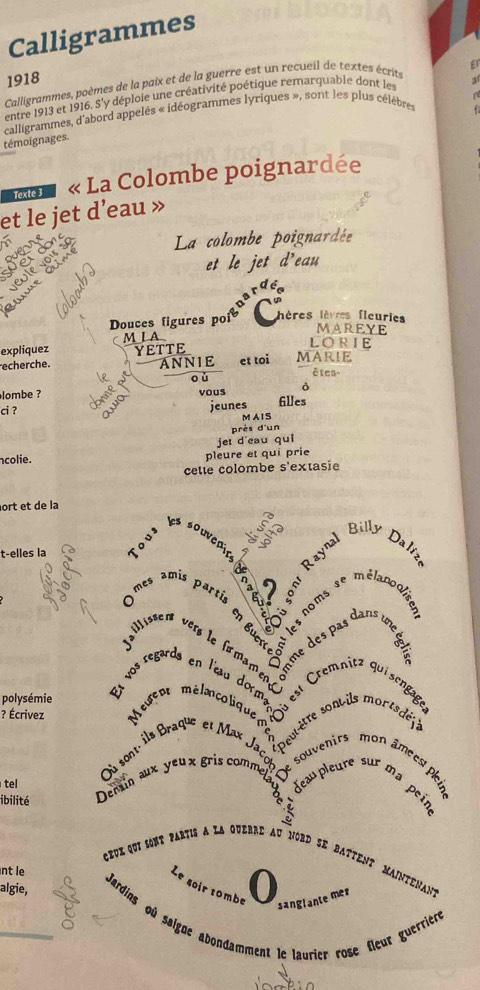 Calligrammes
1918
Calligrammes, poèmes de la paix et de la guerre est un recueil de textes écrits
entre 1913 et 1916. S'y déploie une créativité poétique remarquable dont les
calligrammes, d'abord appelés « idéogrammes lyriques », sont les plus célèbres
témoignages.
Texte 3 « La Colombe poignardée
et le jet d'eau »
La colombe poignardée
et le jet d'eau
Colomba
Douces figures poignardées Chères lèvres fleuries
MIA MAREYE
YETTE LORIE
ANNIE et toi MARIE
où êtes-
vous ô
jeunes filles
MAIS
près d'un
jet d'eau qui
pleure et qui prie
cette colombe s'extasie
expliquez
recherche.
lombe ?
ci ?
ncolie.
ort et de la
t-elles la
?
polysémie
? Écrivez
tel
ibilité
nt le
algie,
di una
volta
Tous les souvenirs de naguère
O mes amis partis en guerre
Jaillissent vers le firmament
Et vos regards en l'eau dormant
Meurent mélancoliquement
Où sont-ils Braque et Max Jacob
Derain aux yeux gris comme l'aube
?
Où sont Raynal Billy Dalize
Dont les noms se mélancolisent
Comme des pas dans une église
Où est Cremnitz qui s'engagea
Peut-être sont-ils morts déjà
De souvenirs mon âme est pleine
Le jet d'eau pleure sur ma peine
CEUX QUI SONT PARTIS A LA GUERRE AU NORD SE BATTENT MAINTENANT
Le soir tombe O sanglante mer
Jardins où saigne abondamment le laurier rose fleur guerrière
occhio